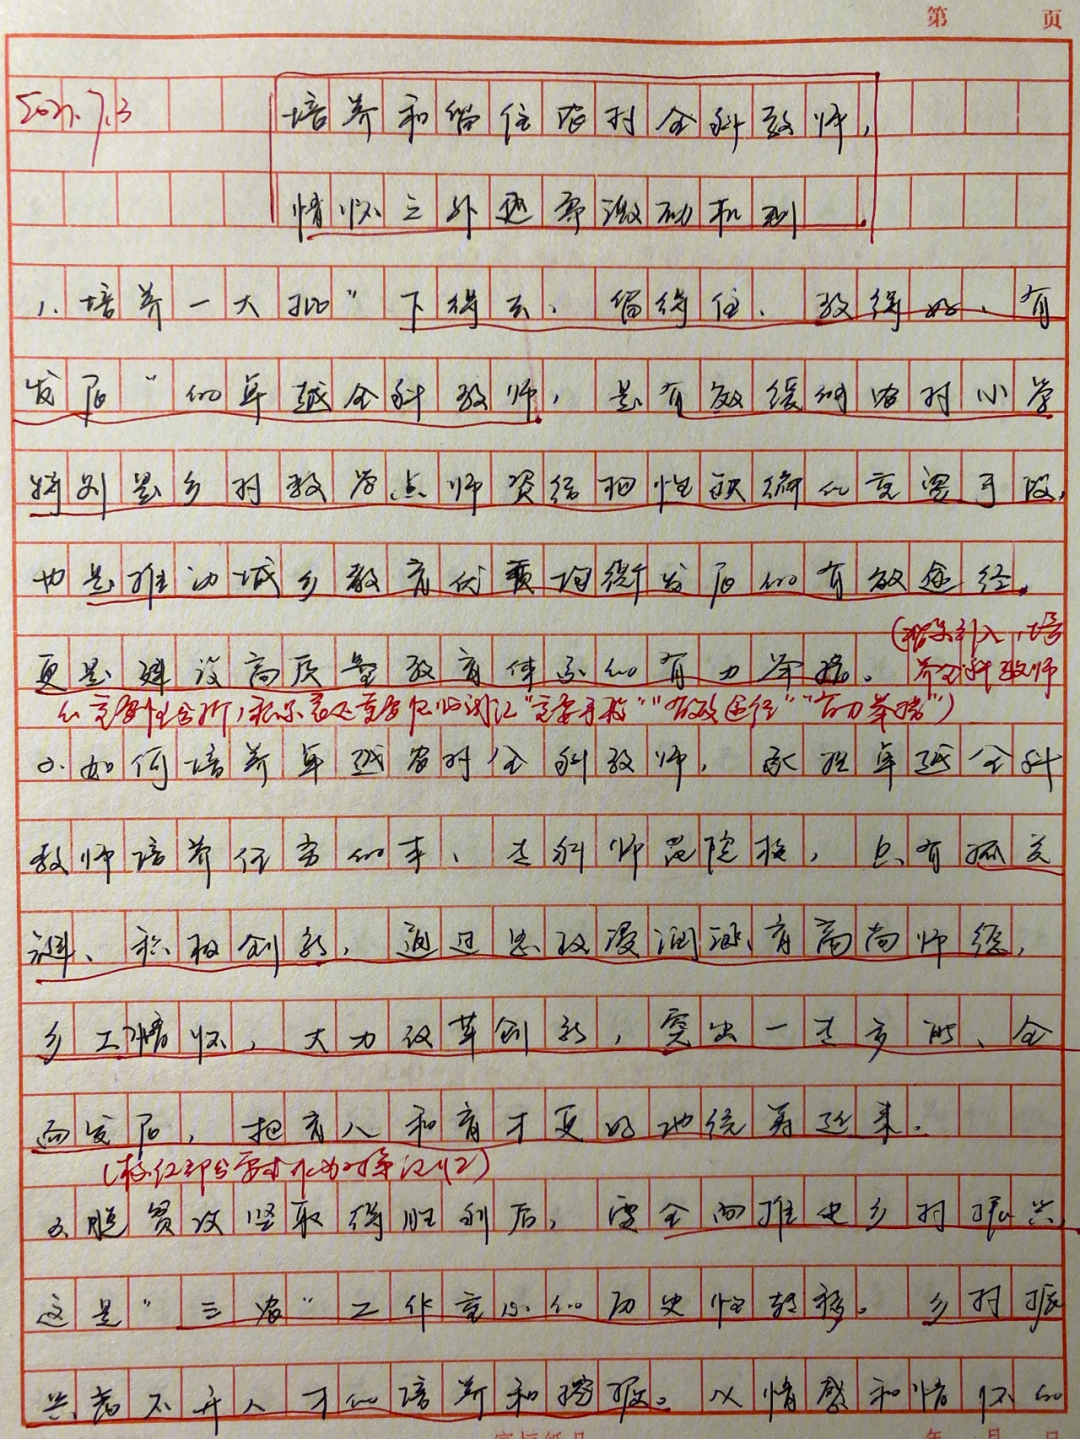 第 页
2021.7.3
培养和留住农村全科教师,
情怀之外还需激励机制
1、培养一大批"下得去、留得住、教得好、有
发展"的卓越全科教师,是有效缓解农村小学
特别是乡村教学点师资结构性缺编的重要手段,
也是推动城乡教育优质均衡发展的有效途径。
更是建设高质量教育体系的有力举措。
养全科教师
的重要性分析,
"重要手段""有效途径""有力举措")
2、如何培养卓越农村全科教师,承担卓越全科
教师培养任务的本、专科师范院校,只有攻关
、积极创新,通过思政浸润涵育高尚师德,
乡土情怀,大力改革创新,突出一专多能、全
面发展,把育人和育才更好地统筹起来。
3、脱贫攻坚取得胜利后,要全面推进乡村振兴
这是"三农"工作重心的历史性转移。乡村振
兴离不开人才的培养和挖掘。从情感和情怀的
年 月 日